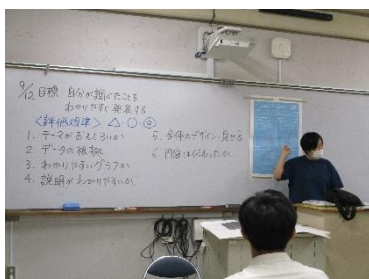 9/12 目標 自分が調べたことを
わかりやすく発表する
〈評価規準〉 △ ○ ◎
1. テーマがおもしろいか
2. データの根拠
3. わかりやすいグラフか
4. 説明がわかりやすいか
5. 全体のデザイン・見せ方
6. 内容は伝わったか